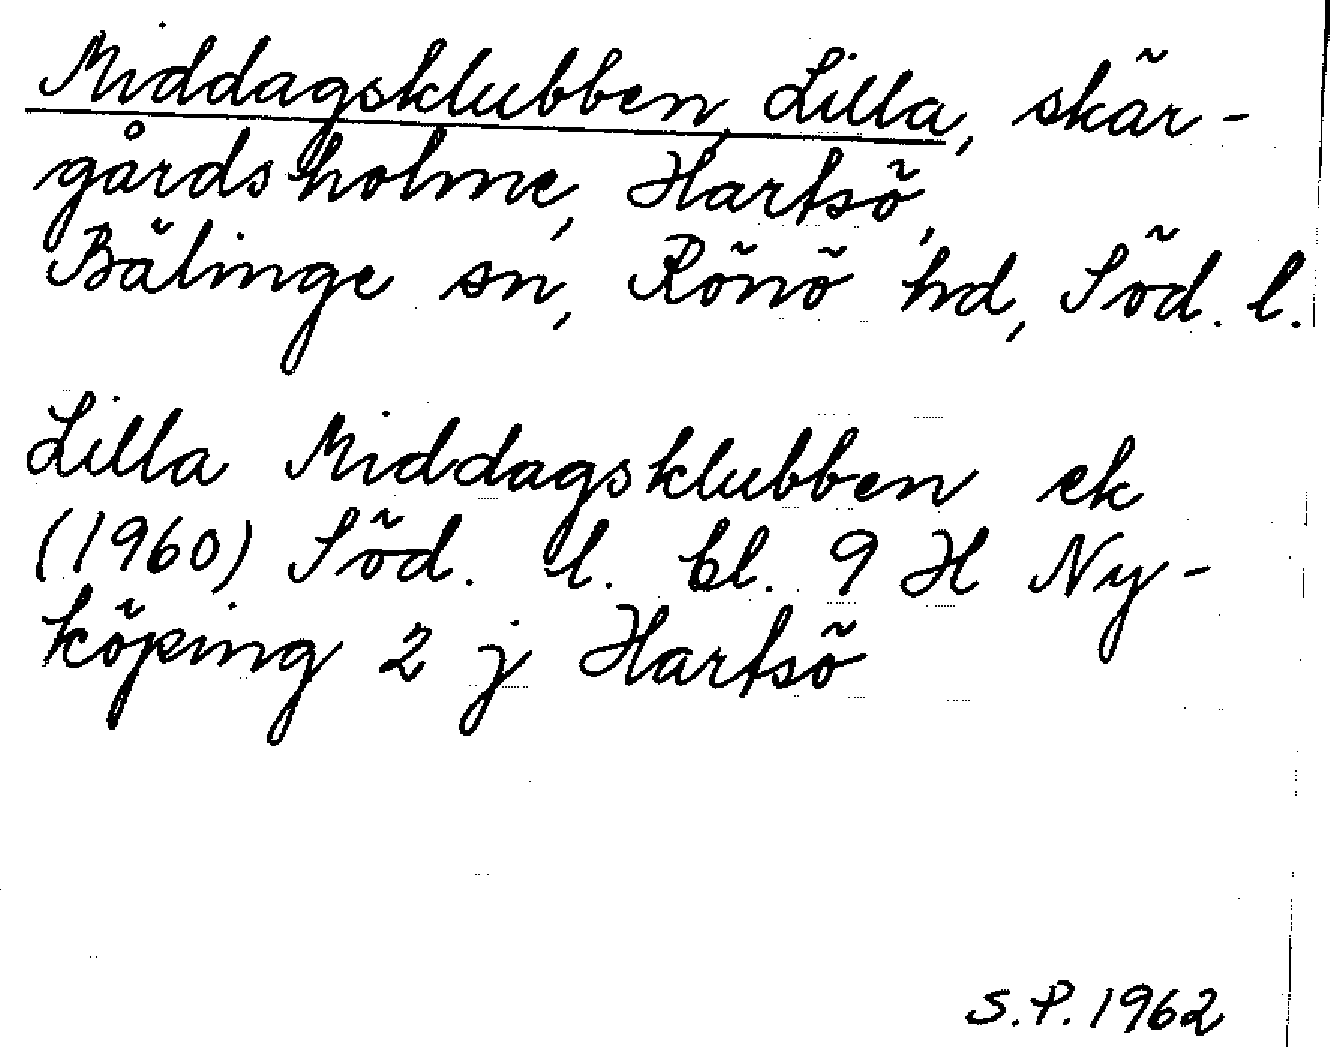 Middagsklubben, Lilla, skär-
gårdsholme, Hartsö,
Bälinge sn, Rönö hd, Söd. l.
Lilla Middagsklubben ek
(1960) Söd. l. bl. 9 H Ny-
köping 2 j Hartsö
S.P. 1962